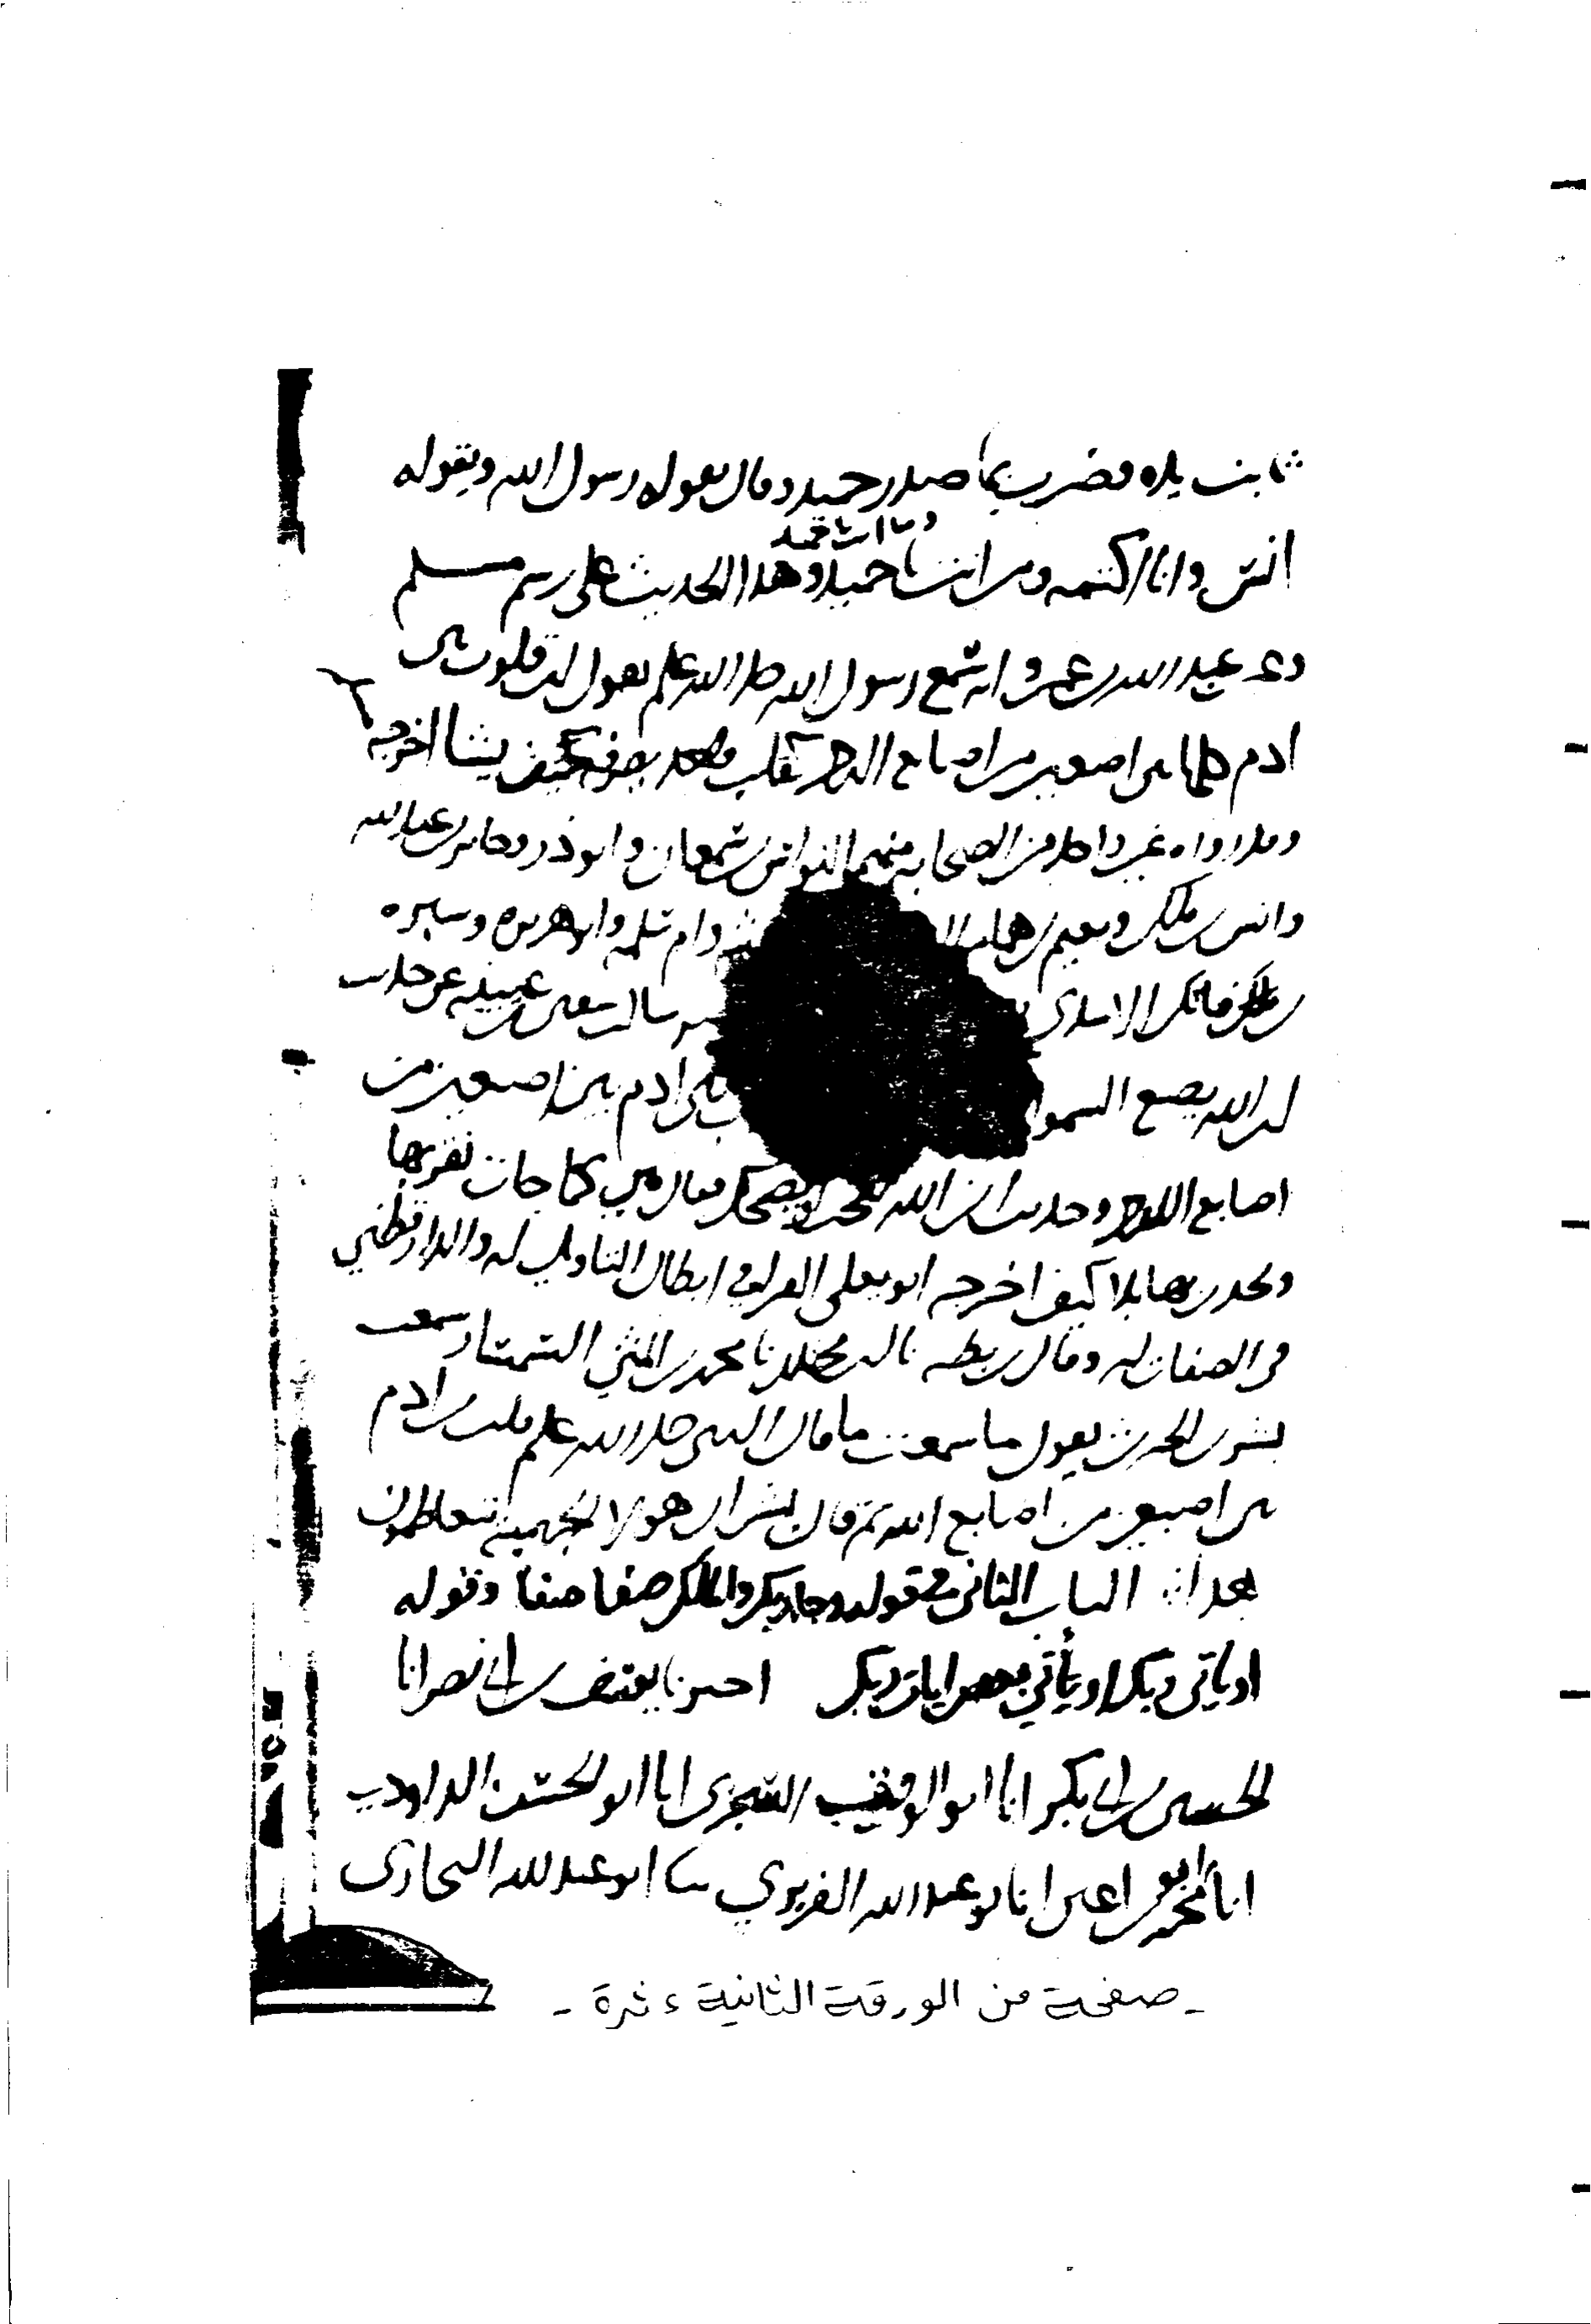 ثابت يده فضرب بها صدر حميد وقال يقوله رسول الله ويقوله
انس وانا اكتمه ومن انت يا حميد وهذا الحديث على رسم مسلم
وعن عبد الله بن عمرو انه سمع رسول الله صلى الله عليه يقول ان قلوب بني
ادم كلها بين اصبعين من اصابع الرحمن كقلب واحد يصرفه كيف يشا اخرجه م
وقد رواه غير واحد من الصحابة منهم النواس بن سمعان وابو ذر وجابر بن عبد الله
وانس بن ملك ونعيم بن همار وام سلمه وابو هريره وسبره
بن فاتك الاسدي سالت سفين بن عيينه عن حديث
ان الله يضع السموا بني ادم بين اصبعين من
اصابع الرحمن وحديث ان الله يعجب ويضحك فقال هي كما جات نقر بها
ونحدث بها بلا كيف اخرجه ابو يعلى الفرا في ابطال التاويل له والدارقطني
في الصفات له وقال بن بطه نا ابن مخلد نا محمد بن المثنى السمسار سمعت
بشر بن الحرث يقول ما سمعت ما قال النبي صلى الله عليه قلب بن ادم
بين اصبعين من اصابع الله ثم قال بشر ان هولا الجهمية يتعاظمون
هذا الباب الثاني في قوله وجا ربك والملك صفا صفا وقوله
او ياتي ربك او يأتي بعض ايات ربك اخبرنا يوسف بن ابي نصر انا
الحسين بن ابي بكر انا ابو الوقت السجزي انا ابو الحسن الداودي
انا ابو محمد بن اعين انا ابو عبد الله الفربري ثنا ابو عبد الله البخاري
- صفحة من الورقة الثانية عشرة -